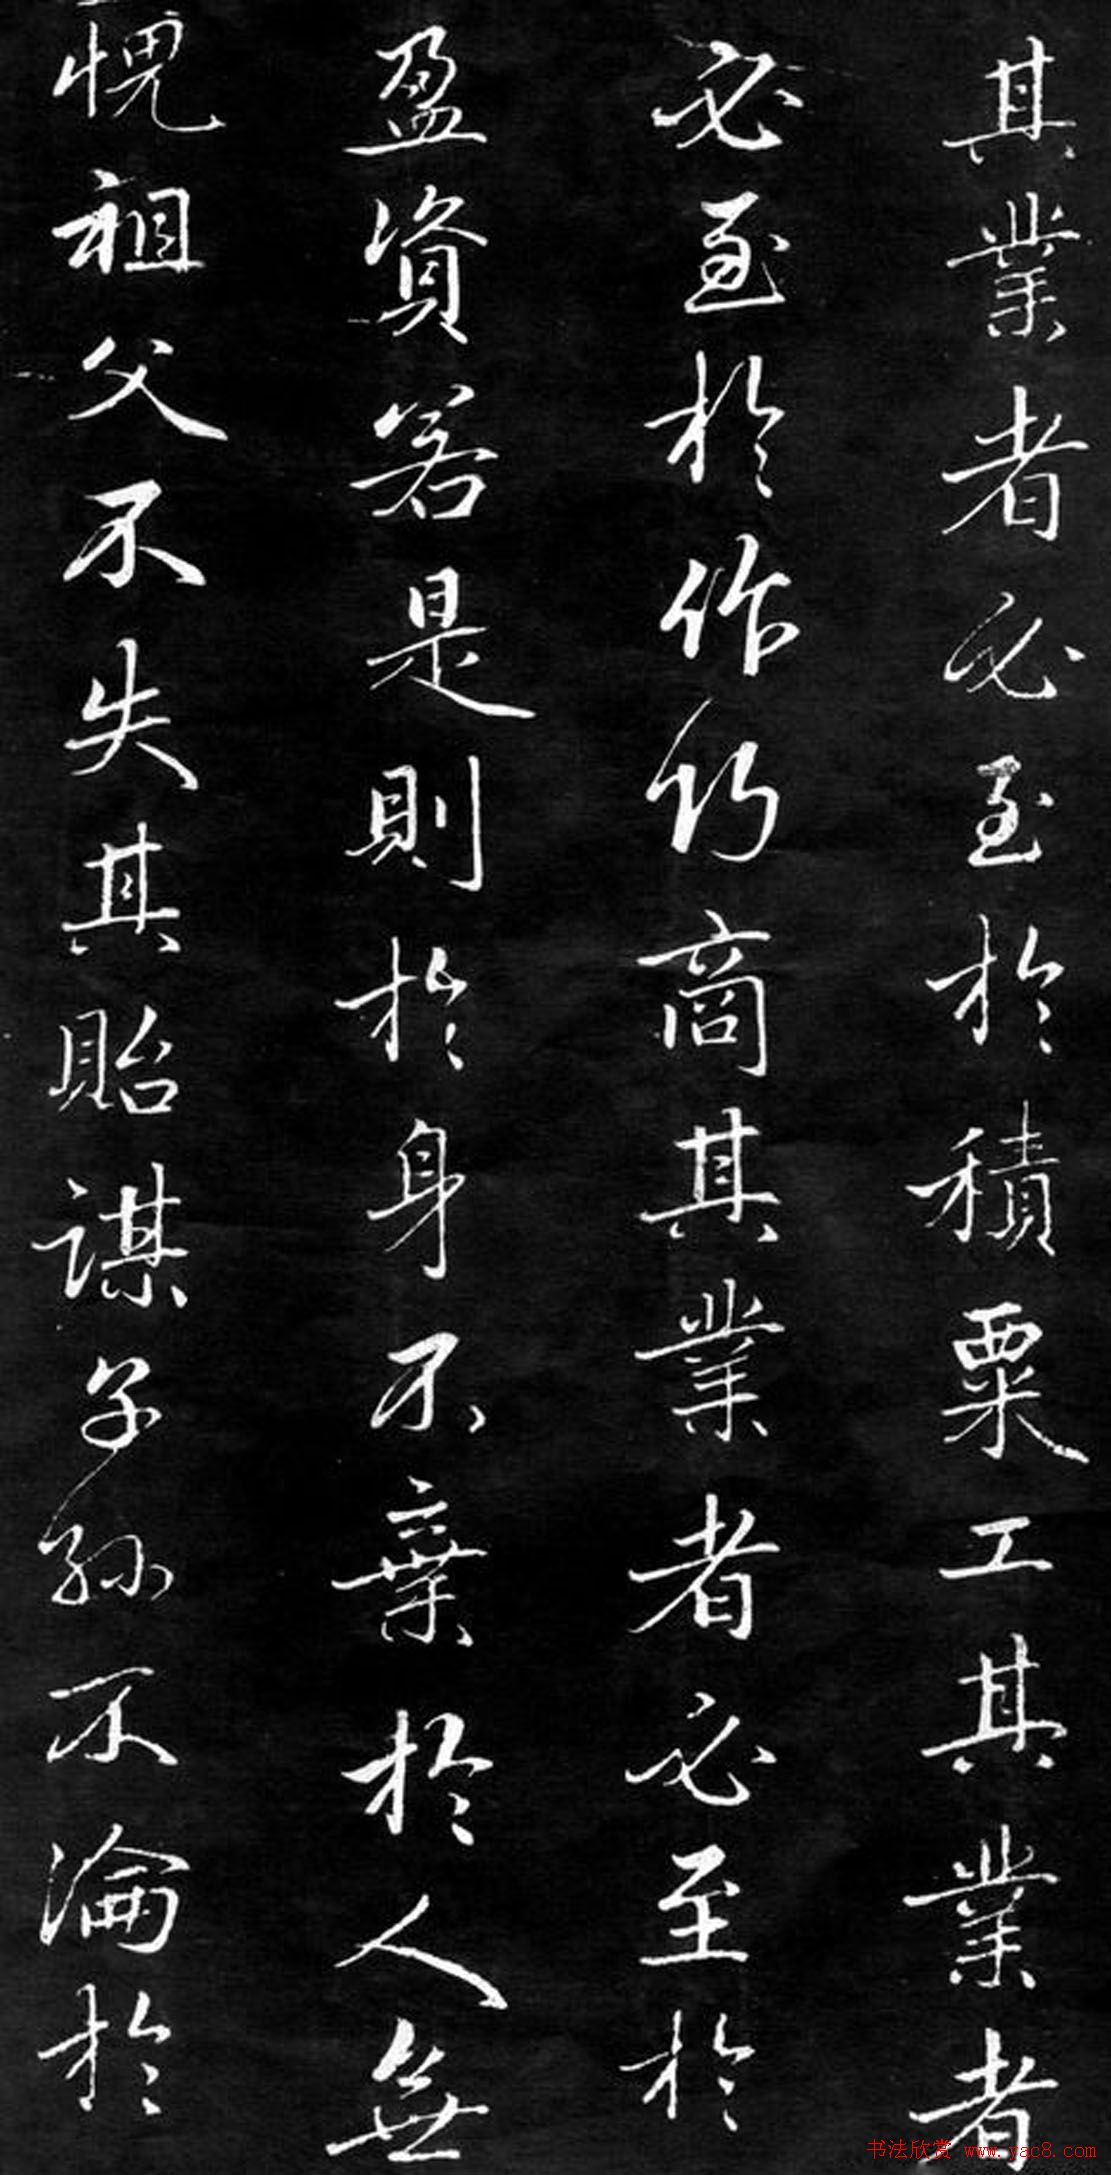 其業者必至於積粟工其業者
必至於作巧商其業者必至於
盈資若是則於身不棄於人無
愧祖父不失其貽謀子孫不淪於
书法欣赏 www.yac8.com